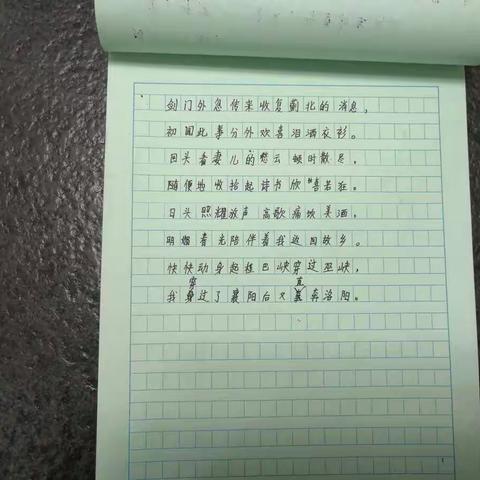 剑门外急传来收复蓟北的消息，
初闻此事分外欢喜泪洒衣衫。
回头看妻儿的愁云顿时散尽，
随便地收拾起诗书欣喜若狂。
日头照耀放声高歌痛饮美酒，
明媚春光陪伴着我返回故乡。
快快动身起程巴峡穿过巫峡，
我穿过了襄阳后又直奔洛阳。